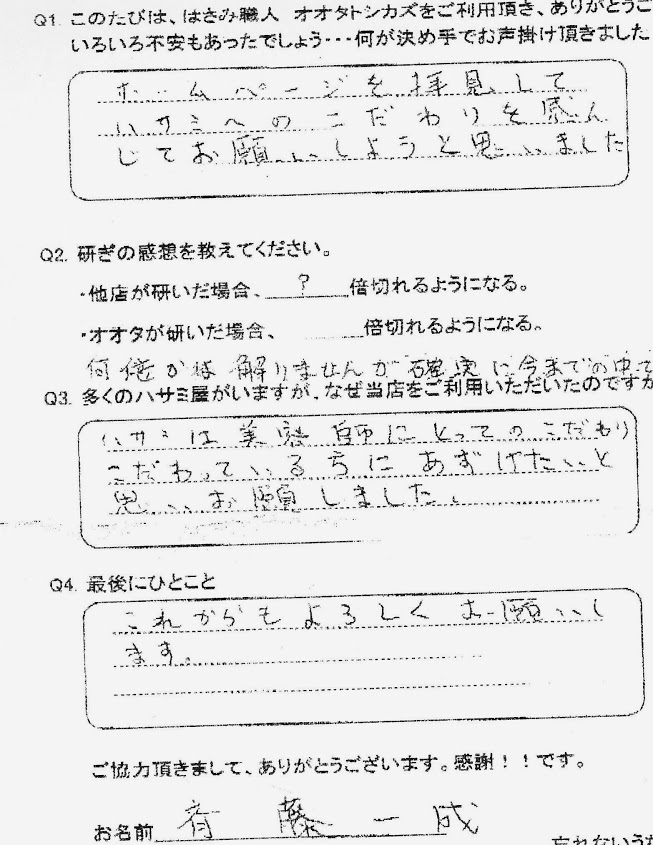 Q1. このたびは、はさみ職人 オオタトシカズをご利用頂き、ありがとうご
いろいろ不安もあったでしょう・・・何が決め手でお声掛け頂きました
ホームページを拝見して
ハサミへのこだわりを感ん
じてお願いしようと思いました
Q2. 研ぎの感想を教えてください。
・他店が研いだ場合、 ? 倍切れるようになる。
・オオタが研いだ場合、 倍切れるようになる。
何倍かは解りませんが確実に今までの中で
Q3. 多くのハサミ屋がいますが、なぜ当店をご利用いただいたのですか
ハサミは美容師にとってのこだわり
こだわっている方にあずけたいと
思いお願しました。
Q4. 最後にひとこと
これからもよろしくお願いし
ます。
ご協力頂きまして、ありがとうございます。感謝！！です。
お名前 斉藤一成
忘れないうち